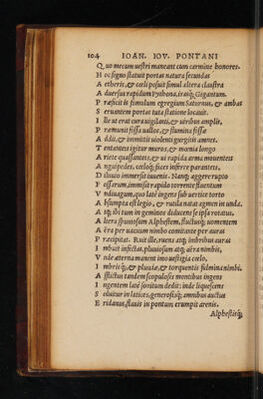 104 IOAN. IOV. PONTANI
Quo mecum uestri maneant cum carmine honores.
Hoc signo statuit portas natura secundas
Aetheris, & coeli posuit simul altera claustra
Aduersus rapidum Pythona, iratosq; Gigantum.
Praeficit & famulum egregium Saturnus, & ambas
Seruantem portas tuta statione locauit.
Ille at erat cura uigilanti, & uiribus amplis,
Praemunit fossa uallos, & flumina fossae
Addit, & immittit uiolenti gurgitis amnes.
Tentantes igitur muros, & moenia longo
Ariete quassantes, & ui rapida arma mouentes
Anguipedes, coeloq; faces inferre parantes,
Diluuio immersit iuuenis. Nanq; aggere rupto
Fossarum, immissa rapido torrente fluentum
Vndiuagum, quo late ingens sub uertice torto
Absumpta est legio, & rutila natat agmen in unda.
Atq; illum in geminos deducere se ipsa rotatus.
Altera spumosum Alphestem, fluctuosq; nomentem
Aera per uacuum nimbo comitante per auras
Praecipitat. Ruit ille, ruens atq; imbribus auras
Imbuit infectas, pluuiosum atq; aera nimbis,
Vnde aeterna manent imo uestigia coelo,
Imbriq;, & pluuiae, & torquentis fulmina nimbi.
Afflictus tandem scopulosos montibus ingens
Ingentem late sonitum dedit: inde liquescens
Soluitur in latices, generosiq; amnibus auctus
Eridanus, flauis in pontum erumpit arenis.
Alphestisq;